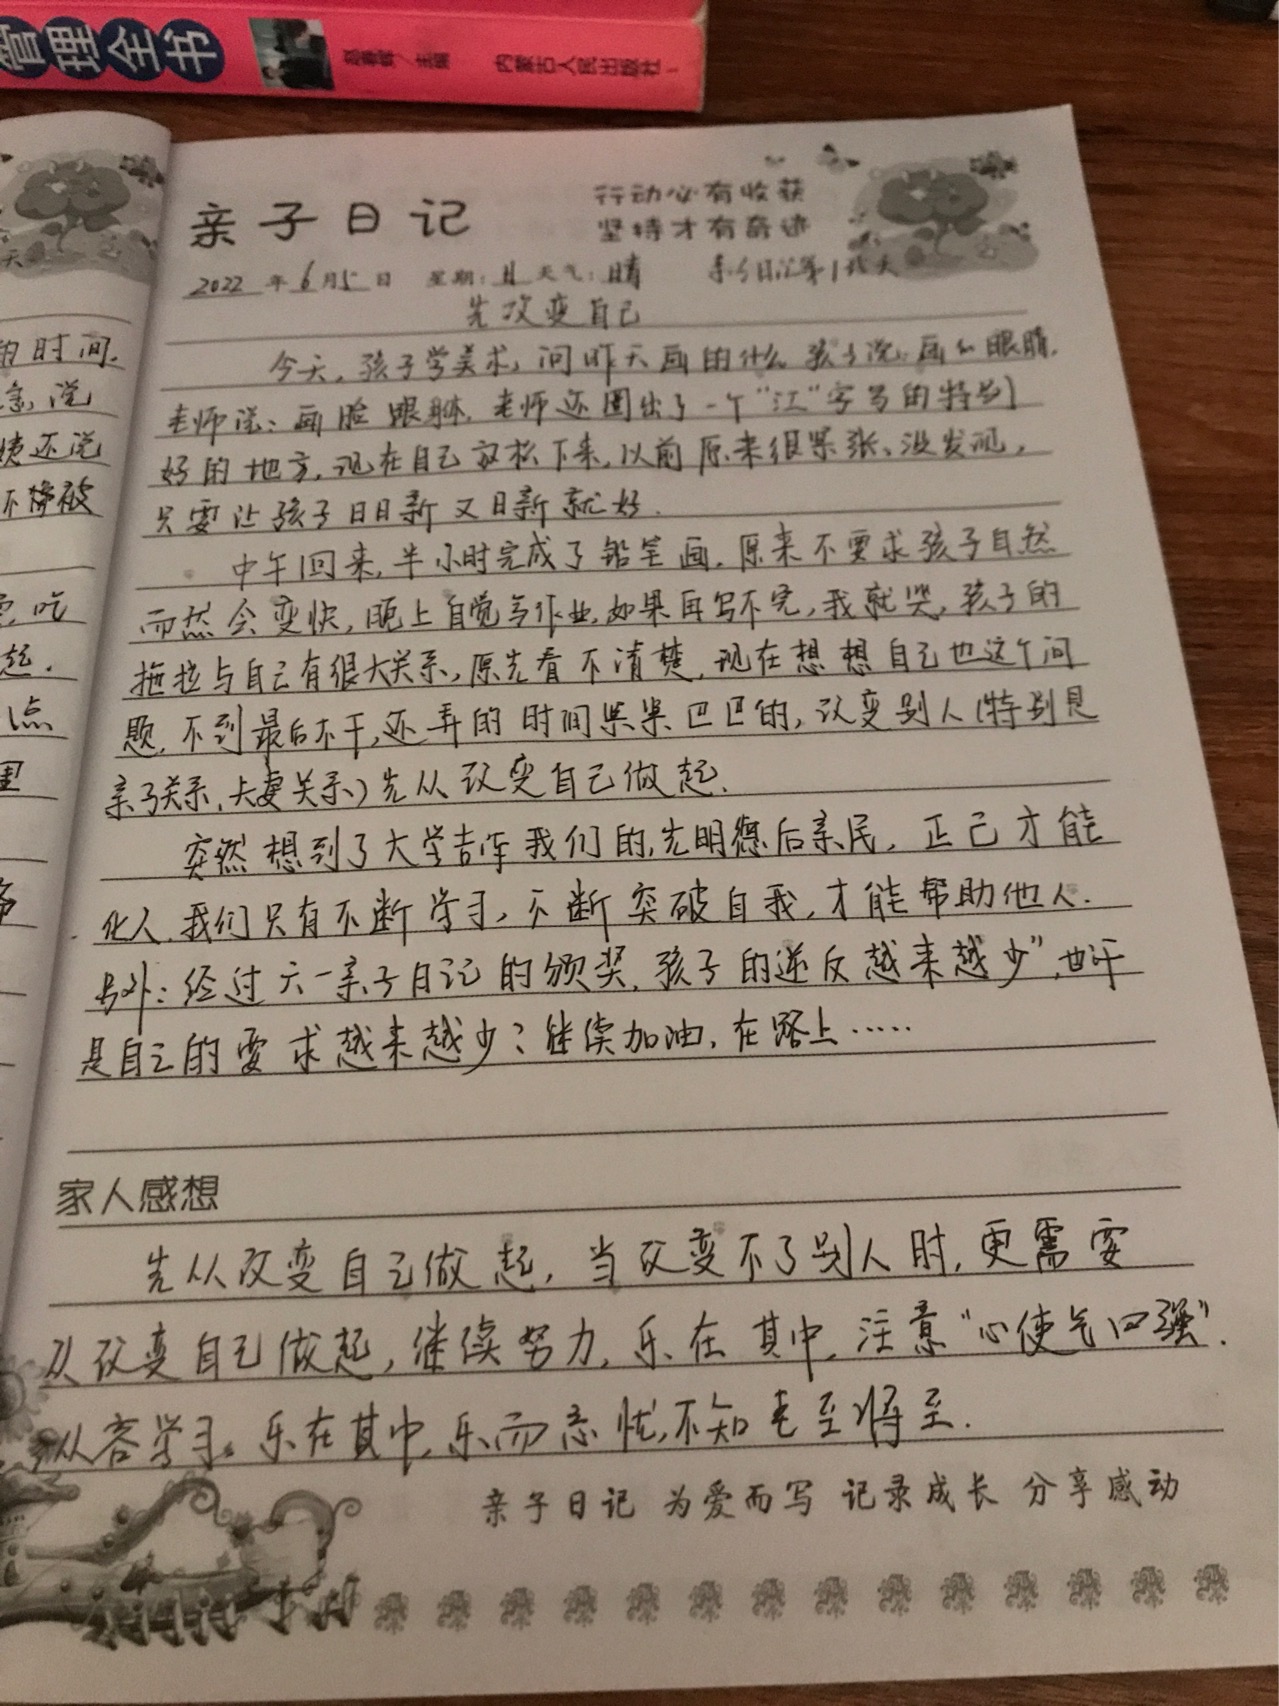 管理全书 主编 内蒙古人民出版社
的时间.
急,说
姨还说
不停被
吃
起.
点
亲子日记
行动必有收获
坚持才有奇迹
2022年6月5日 星期:日 天气:晴 亲子日记第1 天
先改变自己
今天,孩子学美术,问昨天画的什么 孩子说:画的眼睛,
老师说:画脸跟躯体,老师还圈出了一个“江”字写的特别
好的地方,现在自己放松下来,以前原来很紧张、没发现,
只要让孩子日日新又日新就好.
中午回来,半小时完成了铅笔画,原来不要求孩子自然
而然会变快,晚上自觉写作业,如果再写不完,我就哭,孩子的
拖拉与自己有很大关系,原先看不清楚,现在想想自己也这个问
题,不到最后不干,还弄的时间紧紧巴巴的,改变别人(特别是
亲子关系,夫妻关系)先从改变自己做起.
突然想到了大学告诉我们的,先明德后亲民,正己才能
化人,我们只有不断学习,不断突破自我,才能帮助他人.
另外:经过六一亲子日记的颁奖,孩子的逆反越来越少”,也许
是自己的要求越来越少?继续加油,在路上……
家人感想
先从改变自己做起,当改变不了别人时,更需要
从改变自己做起,继续努力,乐在其中,注意“心使气曰强”.
从容学习,乐在其中,乐而忘忧,不知老至将至.
亲子日记 为爱而写 记录成长 分享感动